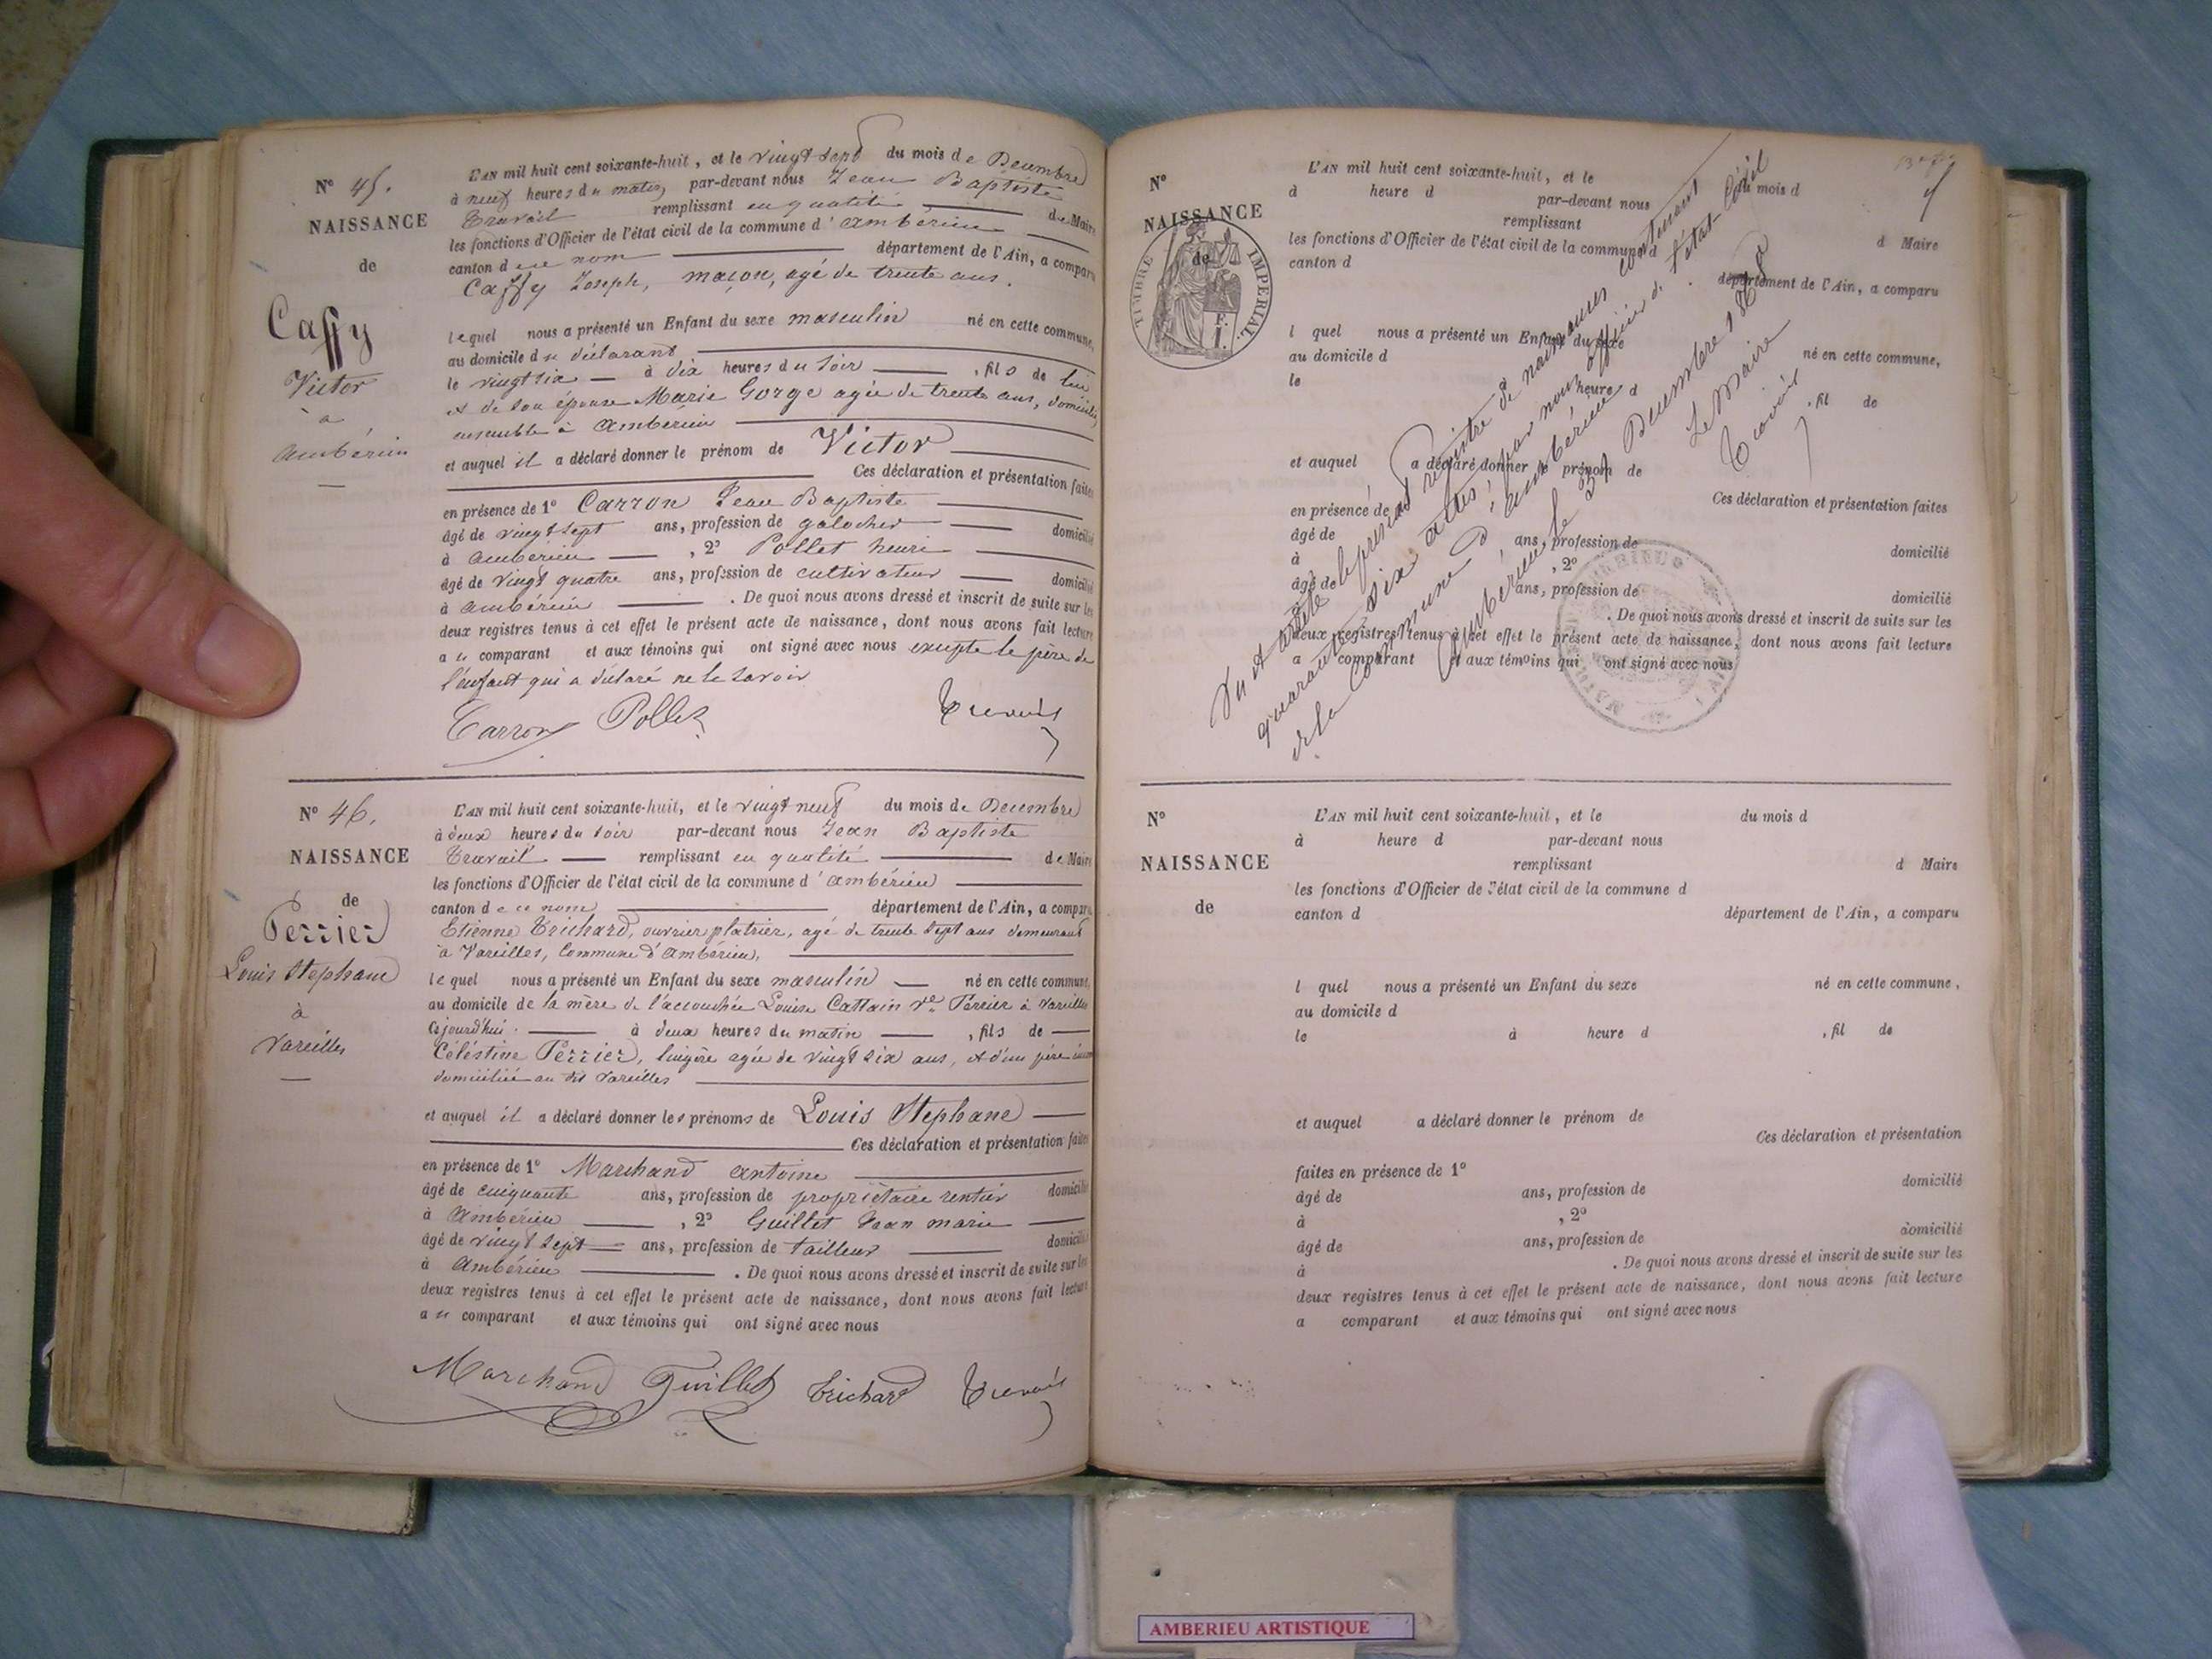 N° 45.
NAISSANCE
de
Caffy
Victor
à
Ambérieu
L'AN mil huit cent soixante-huit, et le vingt sept du mois de Decembre
à neuf heures du matin, par-devant nous Jean Baptiste
Cravail remplissant en qualité de Maire
les fonctions d'Officier de l'état civil de la commune d'Ambérieu
canton de ce nom département de l'Ain, a comparu
Caffy Joseph, maçon, agé de trente ans.
lequel nous a présenté un Enfant du sexe masculin né en cette commune,
au domicile du déclarant
le vingt six à dix heures du soir, fils de lui
et de son épouse Marie Gorge agée de trente ans, domiciliés
ensemble à Ambérieu
et auquel il a déclaré donner le prénom de Victor
Ces déclaration et présentation faites
en présence de 1° Carron Jean Baptiste
âgé de vingt sept ans, profession de galocher domicilié
à Ambérieu, 2° Pollet henri
âgé de vingt quatre ans, profession de cultivateur domicilié
à Ambérieu. De quoi nous avons dressé et inscrit de suite sur les
deux registres tenus à cet effet le présent acte de naissance, dont nous avons fait lecture
au comparant et aux témoins qui ont signé avec nous excepté le père de
l'enfant qui a déclaré ne le savoir
Carron Pollet
N° 46.
NAISSANCE
de
Perrier
Louis Stephane
à
Vareilles
L'AN mil huit cent soixante-huit, et le vingt neuf du mois de Decembre
à deux heures du soir par-devant nous Jean Baptiste
Cravail remplissant en qualité de Maire
les fonctions d'Officier de l'état civil de la commune d'Ambérieu
canton de ce nom département de l'Ain, a comparu
Etienne Trichard, ouvrier platrier, agé de trente sept ans demeurant
à Vareilles, Commune d'Ambérieu,
lequel nous a présenté un Enfant du sexe masculin né en cette commune,
au domicile de la mère de l'accouchée Louise Cattain Ve Perrier à Vareilles
Cejourd'hui à deux heures du matin, fils de
Céléstine Perrier, lingère agée de vingt six ans, et d'un père inconnu
domiciliée au dit Vareilles
et auquel il a déclaré donner les prénoms de Louis Stephane
Ces déclaration et présentation faites
en présence de 1° Marchand Antoine
âgé de cinquante ans, profession de propriétaire rentier domicilié
à Ambérieu, 2° Guillet Jean marie
âgé de vingt sept ans, profession de tailleur domicilié
à Ambérieu. De quoi nous avons dressé et inscrit de suite sur les
deux registres tenus à cet effet le présent acte de naissance, dont nous avons fait lecture
au comparant et aux témoins qui ont signé avec nous
Marchand Guillet Trichard
N°
NAISSANCE
de
TIMBRE IMPERIAL
L'AN mil huit cent soixante-huit, et le du mois d
à heure d par-devant nous
remplissant d Maire
les fonctions d'Officier de l'état civil de la commune d
canton d département de l'Ain, a comparu
l quel nous a présenté un Enfant du sexe né en cette commune,
au domicile d
le heure d, fil de
et auquel a déclaré donner le prénom de
Ces déclaration et présentation faites
en présence de
âgé de ans, profession de domicilié
à, 2°
âgé de ans, profession de domicilié
à. De quoi nous avons dressé et inscrit de suite sur les
deux registres tenus à cet effet le présent acte de naissance, dont nous avons fait lecture
a comparant et aux témoins qui ont signé avec nous
Vu et arrêté le présent registre de naissances contenant
quarante six actes, par nous officier de l'état-Civil
de la Commune d'Ambérieu
Ambérieu le 31 Decembre 1868
Le Maire
N°
NAISSANCE
de
L'AN mil huit cent soixante-huit, et le du mois d
à heure d par-devant nous
remplissant d Maire
les fonctions d'Officier de l'état civil de la commune d
canton d département de l'Ain, a comparu
l quel nous a présenté un Enfant du sexe né en cette commune,
au domicile d
le à heure d, fil de
et auquel a déclaré donner le prénom de
Ces déclaration et présentation
faites en présence de 1°
âgé de ans, profession de domicilié
à, 2°
âgé de ans, profession de domicilié
à. De quoi nous avons dressé et inscrit de suite sur les
deux registres tenus à cet effet le présent acte de naissance, dont nous avons fait lecture
a comparant et aux témoins qui ont signé avec nous
AMBERIEU ARTISTIQUE